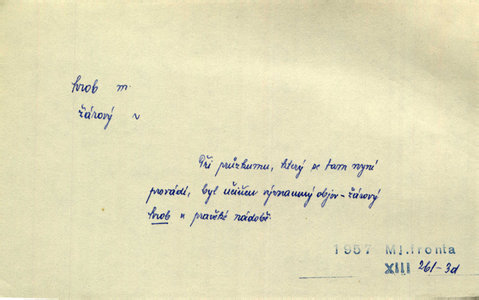 hrob m.
žárový
Při průzkumu, který se tam nyní
provádí, byl učiněn významný objev – žárový
hrob v pravěké nádobě.
1957 Ml.fronta
XIII 261-3d